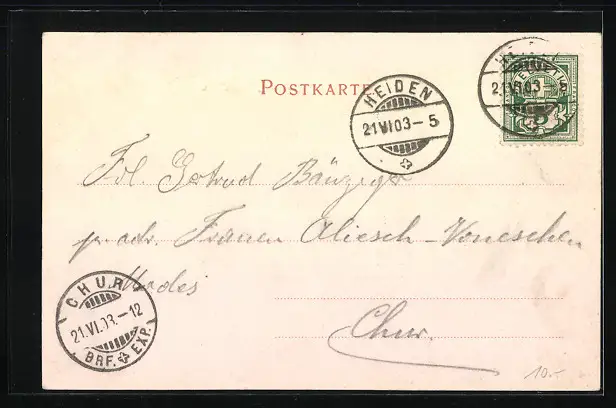 POSTKARTE
HEIDEN
21.VI.03-5
HE
HELVETIA
21.VI.03-
5
Frl. Gertrud Bänziger
p. adr. Frauen Aliesch-Voneschen
Modes
Chur.
CHUR
21.VI.03.-12
BRF. EXP.
10.-